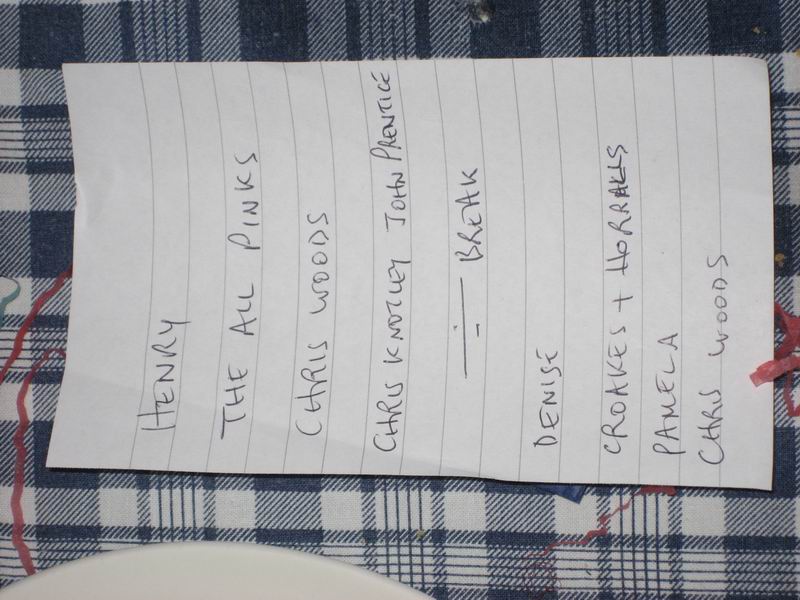 HENRY
THE ALL PINKS
CHRIS WOODS
CHRIS KNOTLEY JOHN PRENTICE
BREAK
DENISE
CROAKES + HORRALLS
PAMELA
CHRIS WOODS